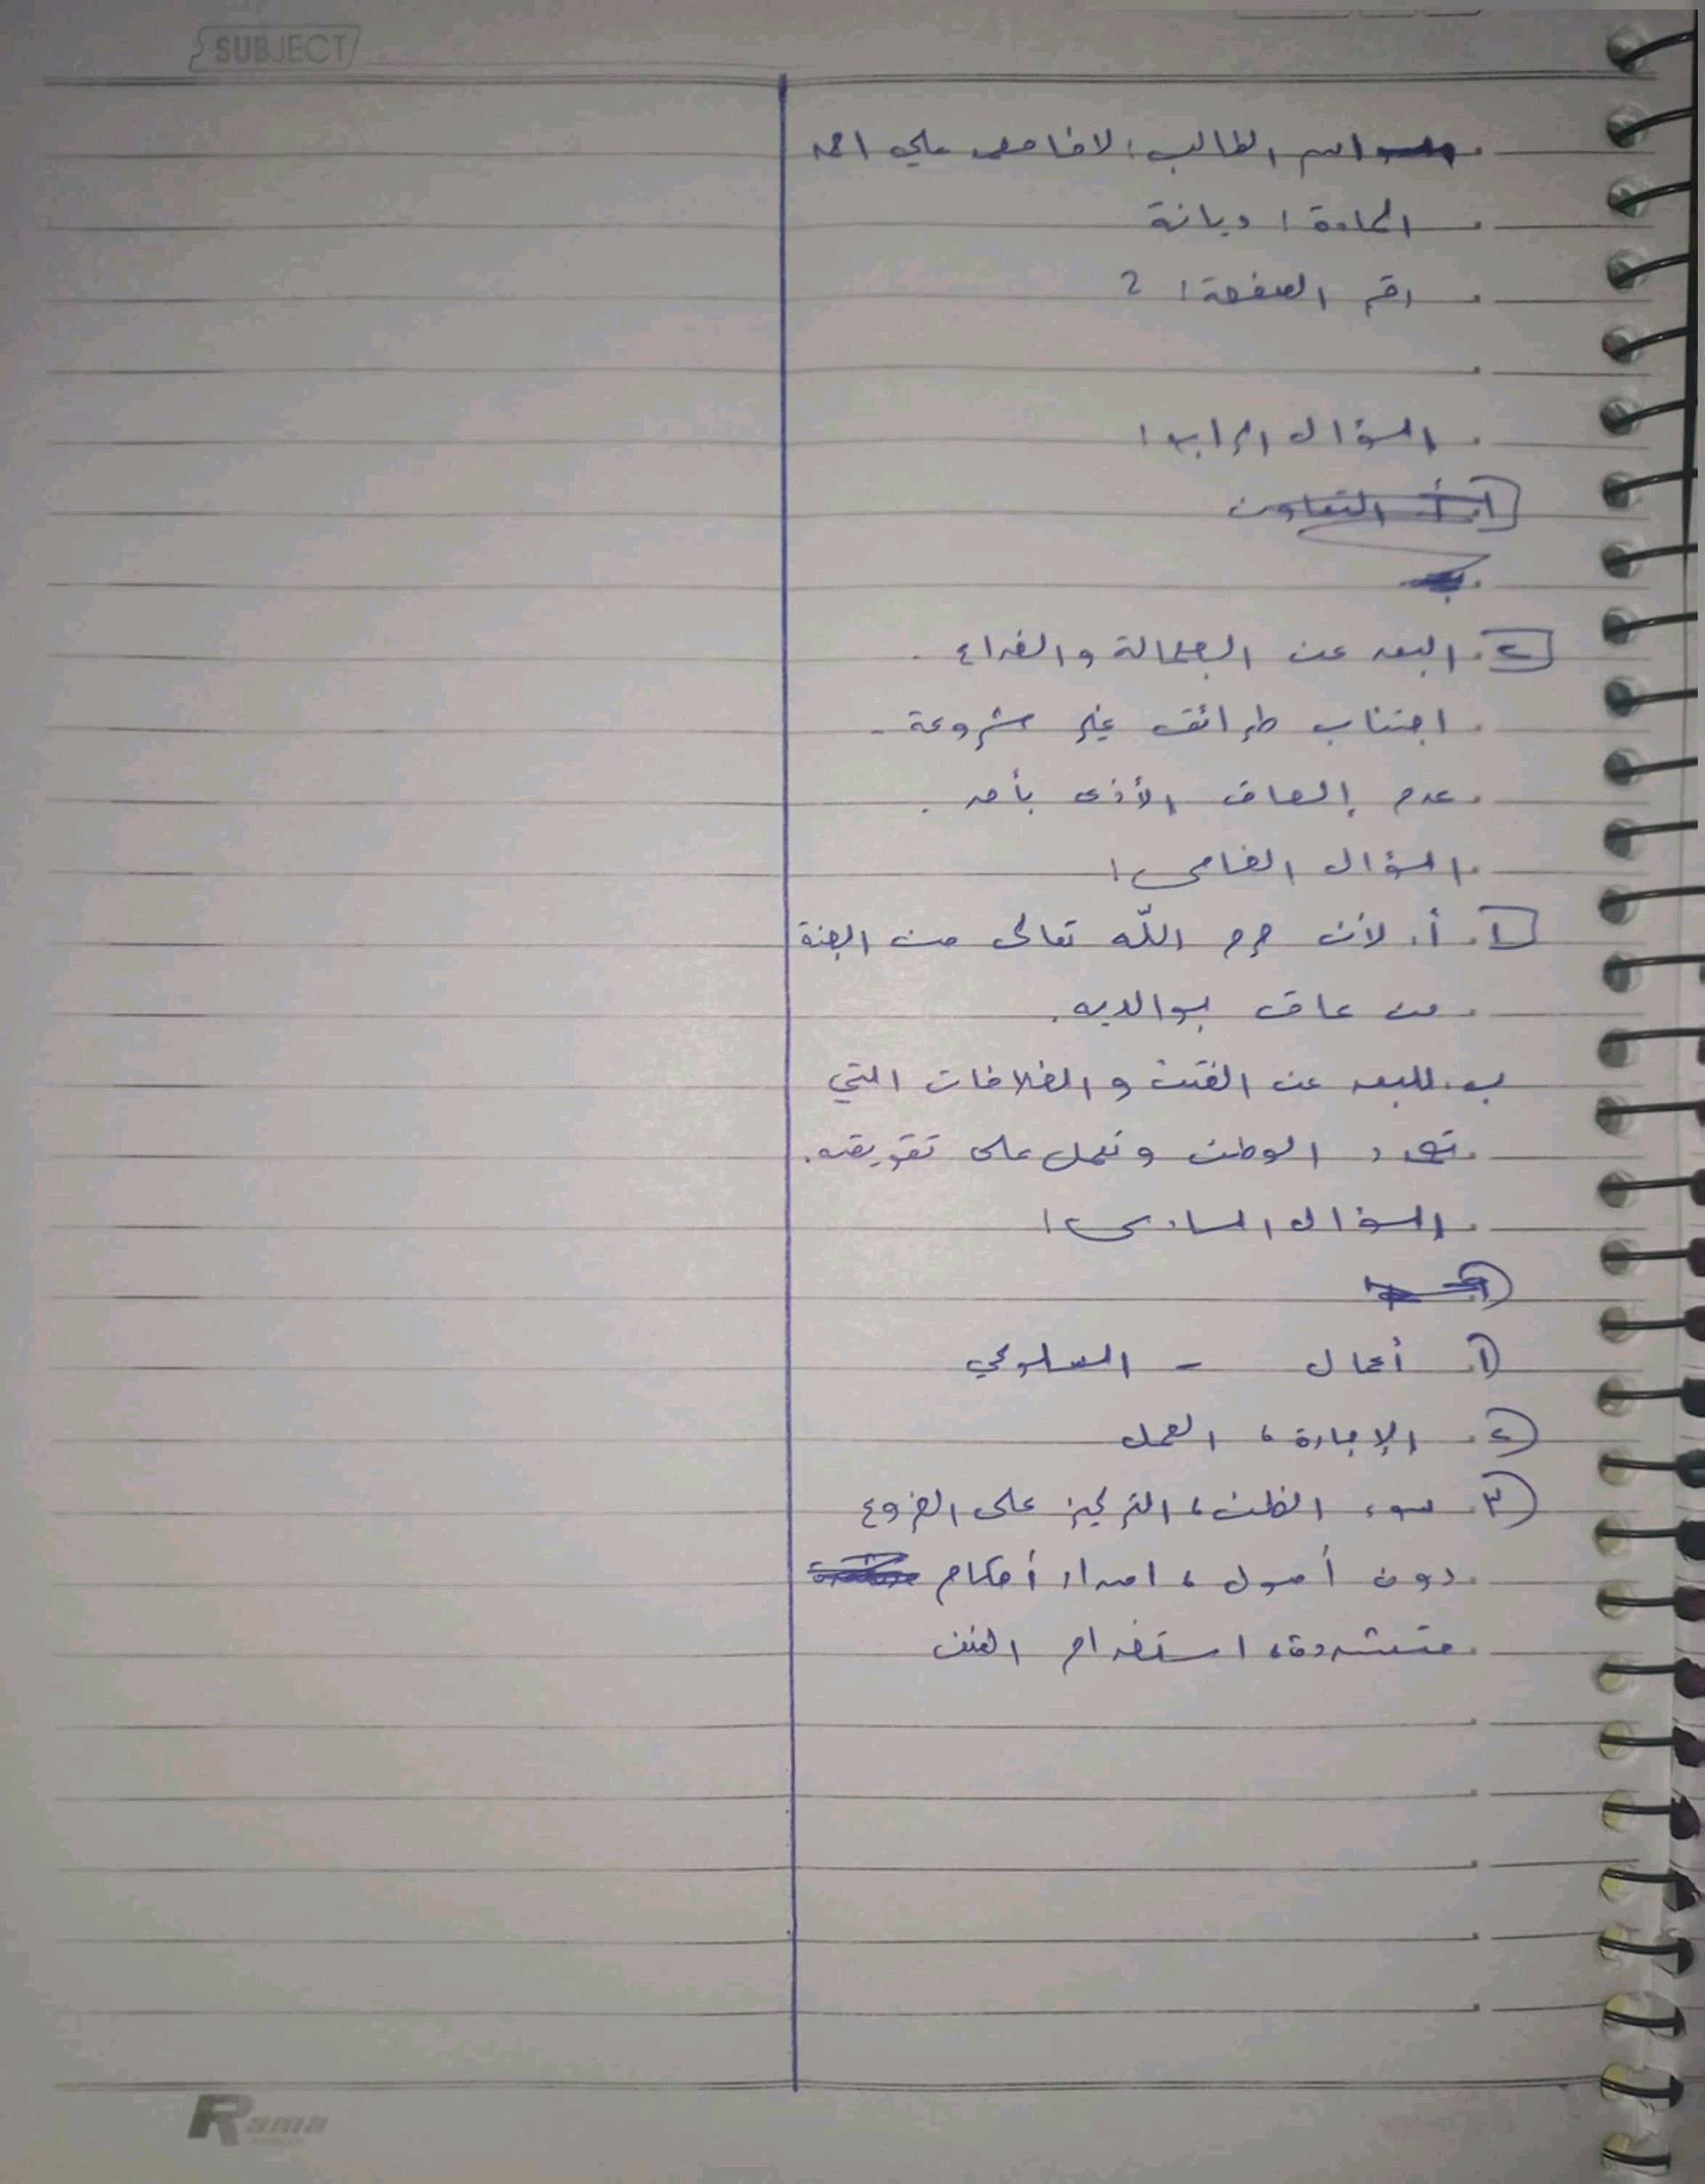 SUBJECT
اسم الطالب: علي احمد
المادة: ديانة
رقم الصفحة: 2
السؤال الرابع:
أ. التعاون
2. البعد عن البطالة والفراغ.
اجتناب طرائق غير مشروعة.
عدم إلحاق الأذى بأحد.
السؤال الخامس:
1. أ. لأن حرم الله تعالى من الجنة
من عاق بوالديه.
ب. للبعد عن الفتن و الخلافات التي
تهدد الوطن و تعمل على
السؤال السادس:
1) أعمال - السلوكي
2) الإجارة، العمل
3) سوء الظن، التركيز على الفروع
دون أصول، اصدار أحكام
متشددة، استخدام العنف
Rama